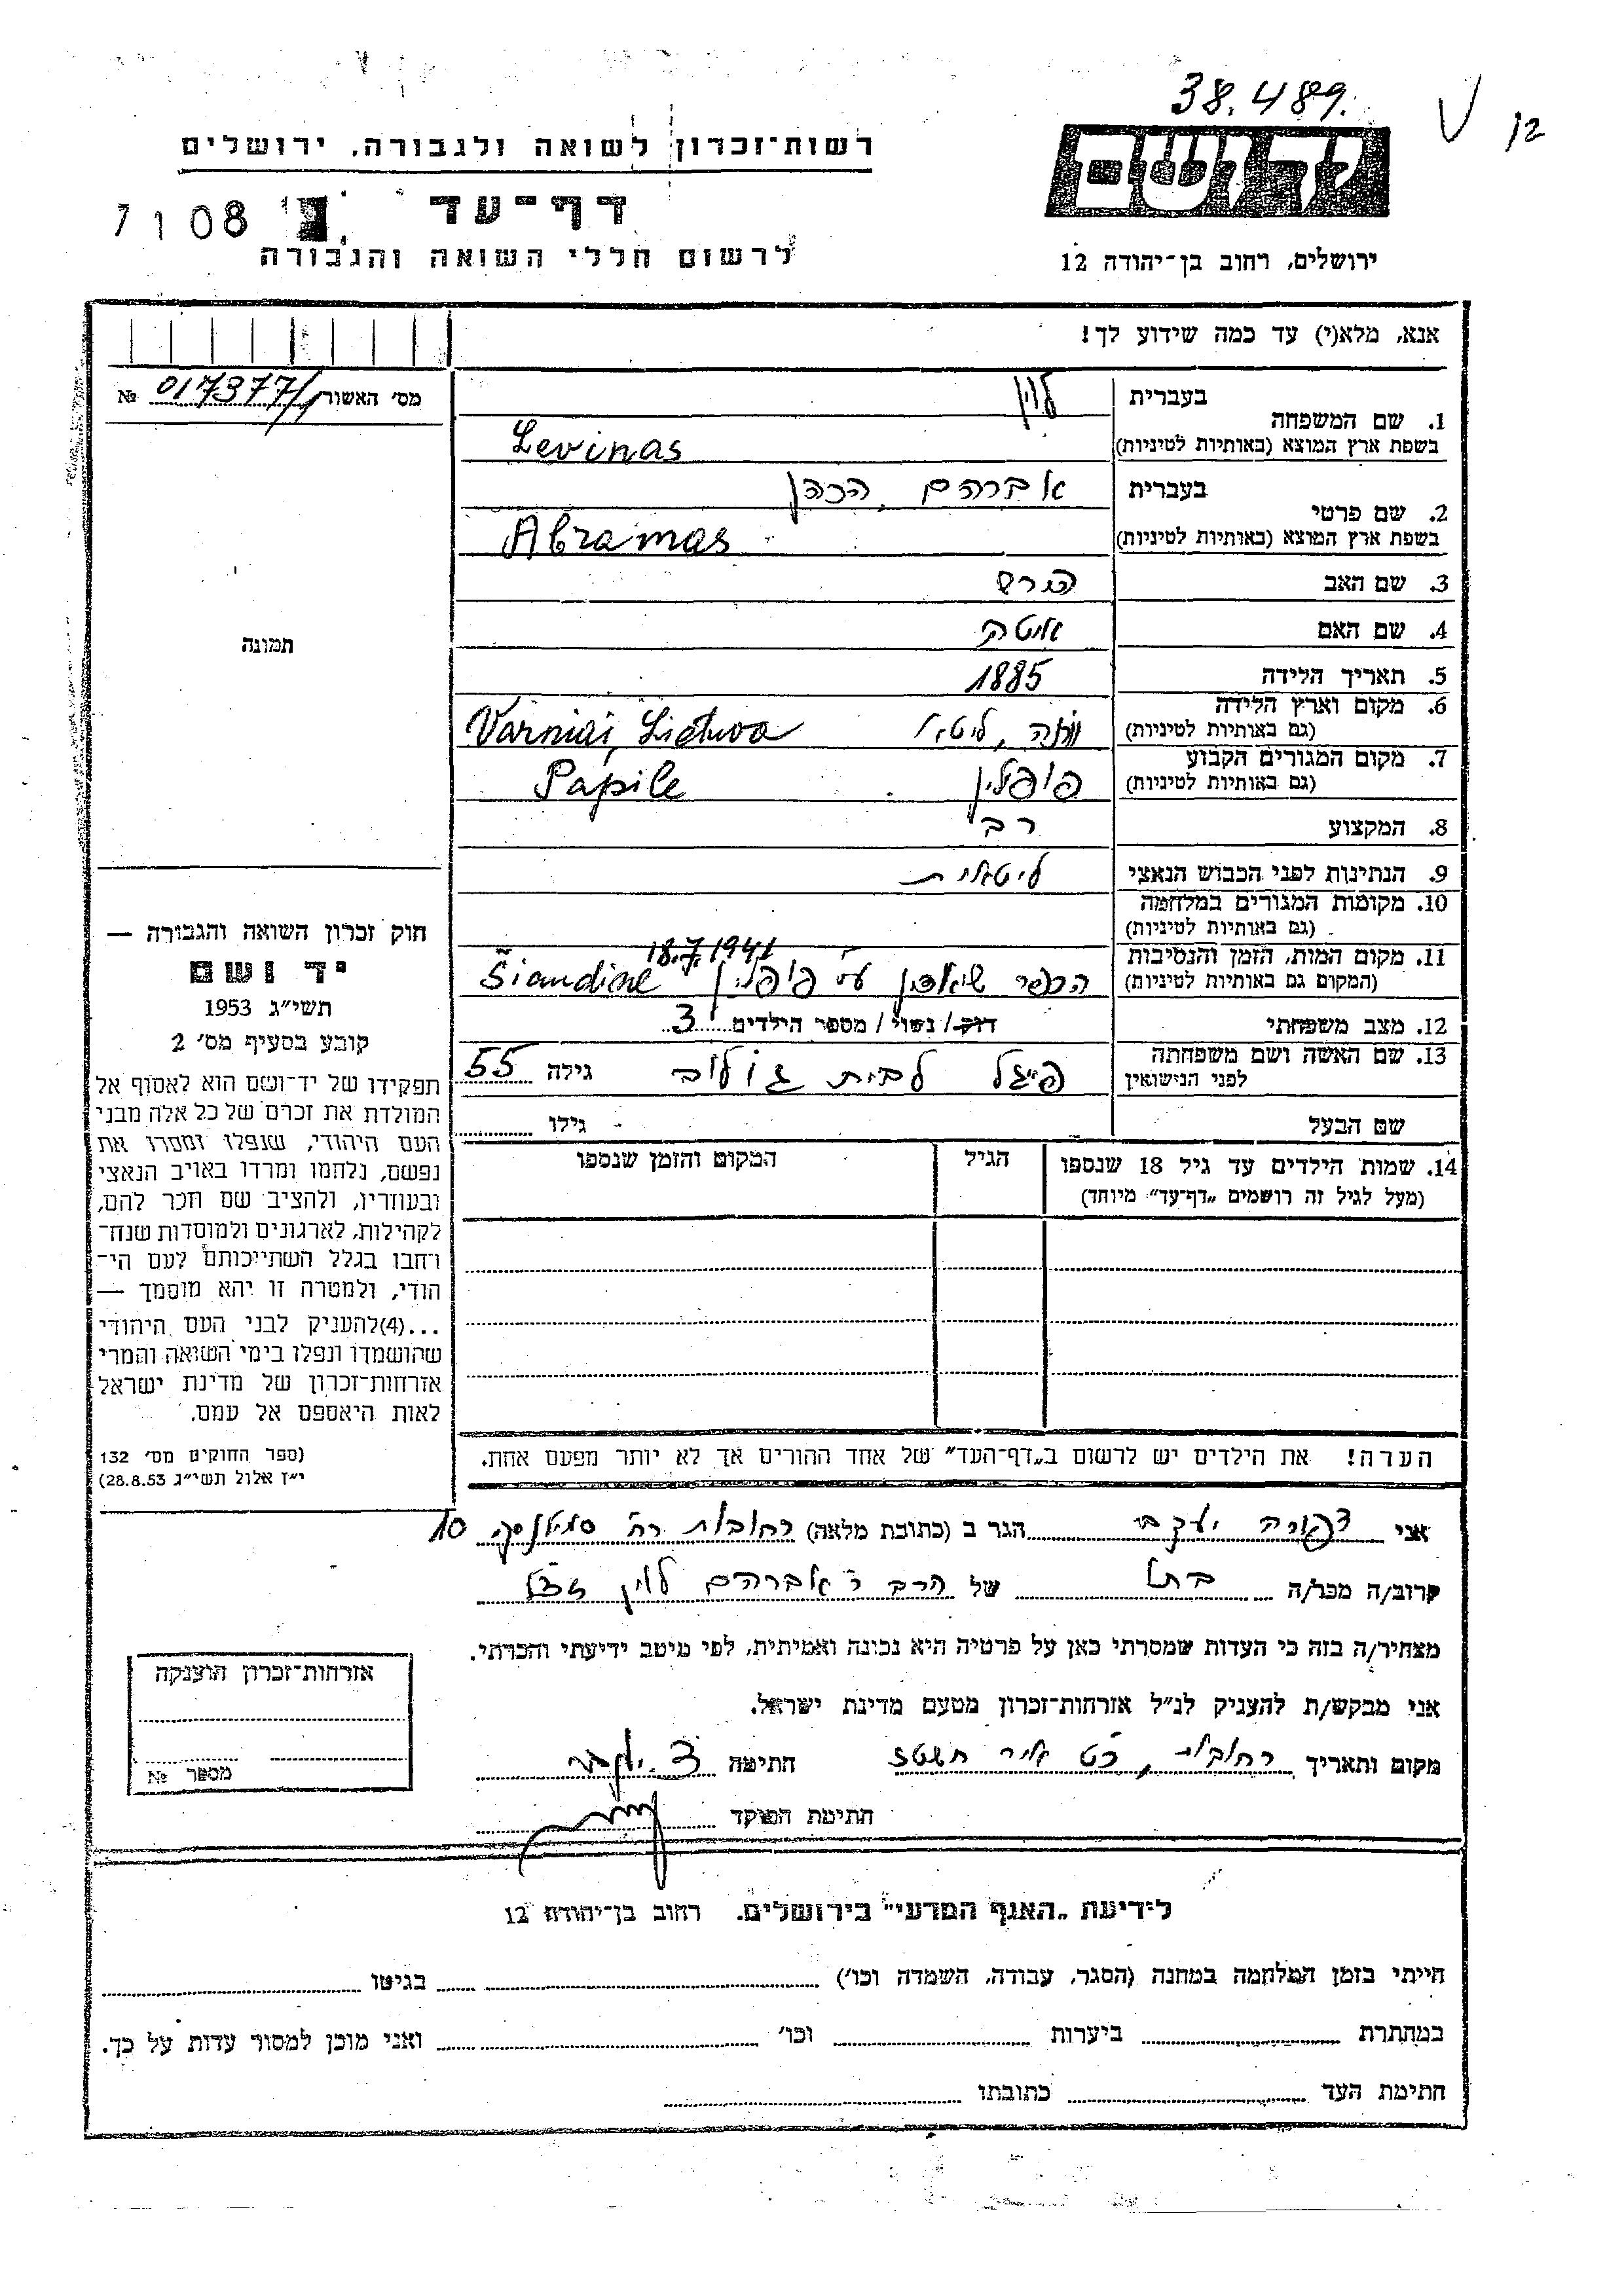 38.489.
12
רשות־זכרון לשואה ולגבורה, ירושלים
ידושם
דף־עד
7108
לרשום חללי השואה והגבורה
ירושלים, רחוב בן־יהודה 12
אנא, מלא(י) עד כמה שידוע לך!
מס׳ האשור 017377/ №
1. שם המשפחה
בעברית לוין
בשפת ארץ המוצא (באותיות לטיניות) Levinas
2. שם פרטי
בעברית אברהם, הכהן
בשפת ארץ המוצא (באותיות לטיניות) Abramas
3. שם האב הירש
4. שם האם איטה
תמונה
5. תאריך הלידה 1885
6. מקום וארץ הלידה
(גם באותיות לטיניות) ליטא Varniai, Lietuva
7. מקום המגורים הקבוע
(גם באותיות לטיניות) פופלין Papile
8. המקצוע רב
9. הנתינות לפני הכבוש הנאצי ליטאית
10. מקומות המגורים במלחמה
(גם באותיות לטיניות)
11. מקום המות, הזמן והנסיבות 18.7.1941
(המקום גם באותיות לטיניות) הכפר שיאודין ע״י פופלין Šiaudine
12. מצב משפחתי רוק/נשוי/מספר הילדים 3
13. שם האשה ושם משפחתה
לפני הנישואין פיגל לבית גולוב גילה 55
שם הבעל גילו
14. שמות הילדים עד גיל 18 שנספו הגיל המקום והזמן שנספו
(מעל לגיל זה רושמים „דף־עד״ מיוחד)
הערה! את הילדים יש לרשום ב„דף־העד״ של אחד ההורים אך לא יותר מפעם אחת.
חוק זכרון השואה והגבורה —
יד ושם
תשי״ג 1953
קובע בסעיף מס׳ 2
תפקידו של יד־ושם הוא לאסוף אל
המולדת את זכרם של כל אלה מבני
העם היהודי, שנפלו ומסרו את
נפשם, נלחמו ומרדו באויב הנאצי
ובעוזריו, ולהציב שם וזכר להם,
לקהילות, לארגונים ולמוסדות שנח־
רבו בגלל השתייכותם לעם הי־
הודי, ולמטרה זו יהא מוסמך —
...(4)להעניק לבני העם היהודי
שהושמדו ונפלו בימי השואה והמרי
אזרחות־זכרון של מדינת ישראל
לאות היאספם אל עמם.
(ספר החוקים מס׳ 132
י״ז אלול תשי״ג 28.8.53)
אני צפורה יעקבי הגר ב (כתובת מלאה) רחובות רח׳ סמילנסקי 10
קרוב/ה מכר/ה בתו של הרב ר׳ אברהם לוין זצ״ל
מצהיר/ה בזה כי העדות שמסרתי כאן על פרטיה היא נכונה ואמיתית, לפי מיטב ידיעתי והכרתי.
אני מבקש/ת להעניק לנ״ל אזרחות־זכרון מטעם מדינת ישראל.
מקום ותאריך רחובות, כט אייר תשטז חתימה צ. יעקבי
חתימת הפוקד
אזרחות־זכרון הוענקה
מספר №
לידיעת „האגף המדעי״ בירושלים. רחוב בן־יהודה 12
הייתי בזמן המלחמה במחנה (הסגר, עבודה, השמדה וכו׳) בגיטו
במחתרת ביערות וכו׳ ואני מוכן למסור עדות על כך.
חתימת העד כתובתו